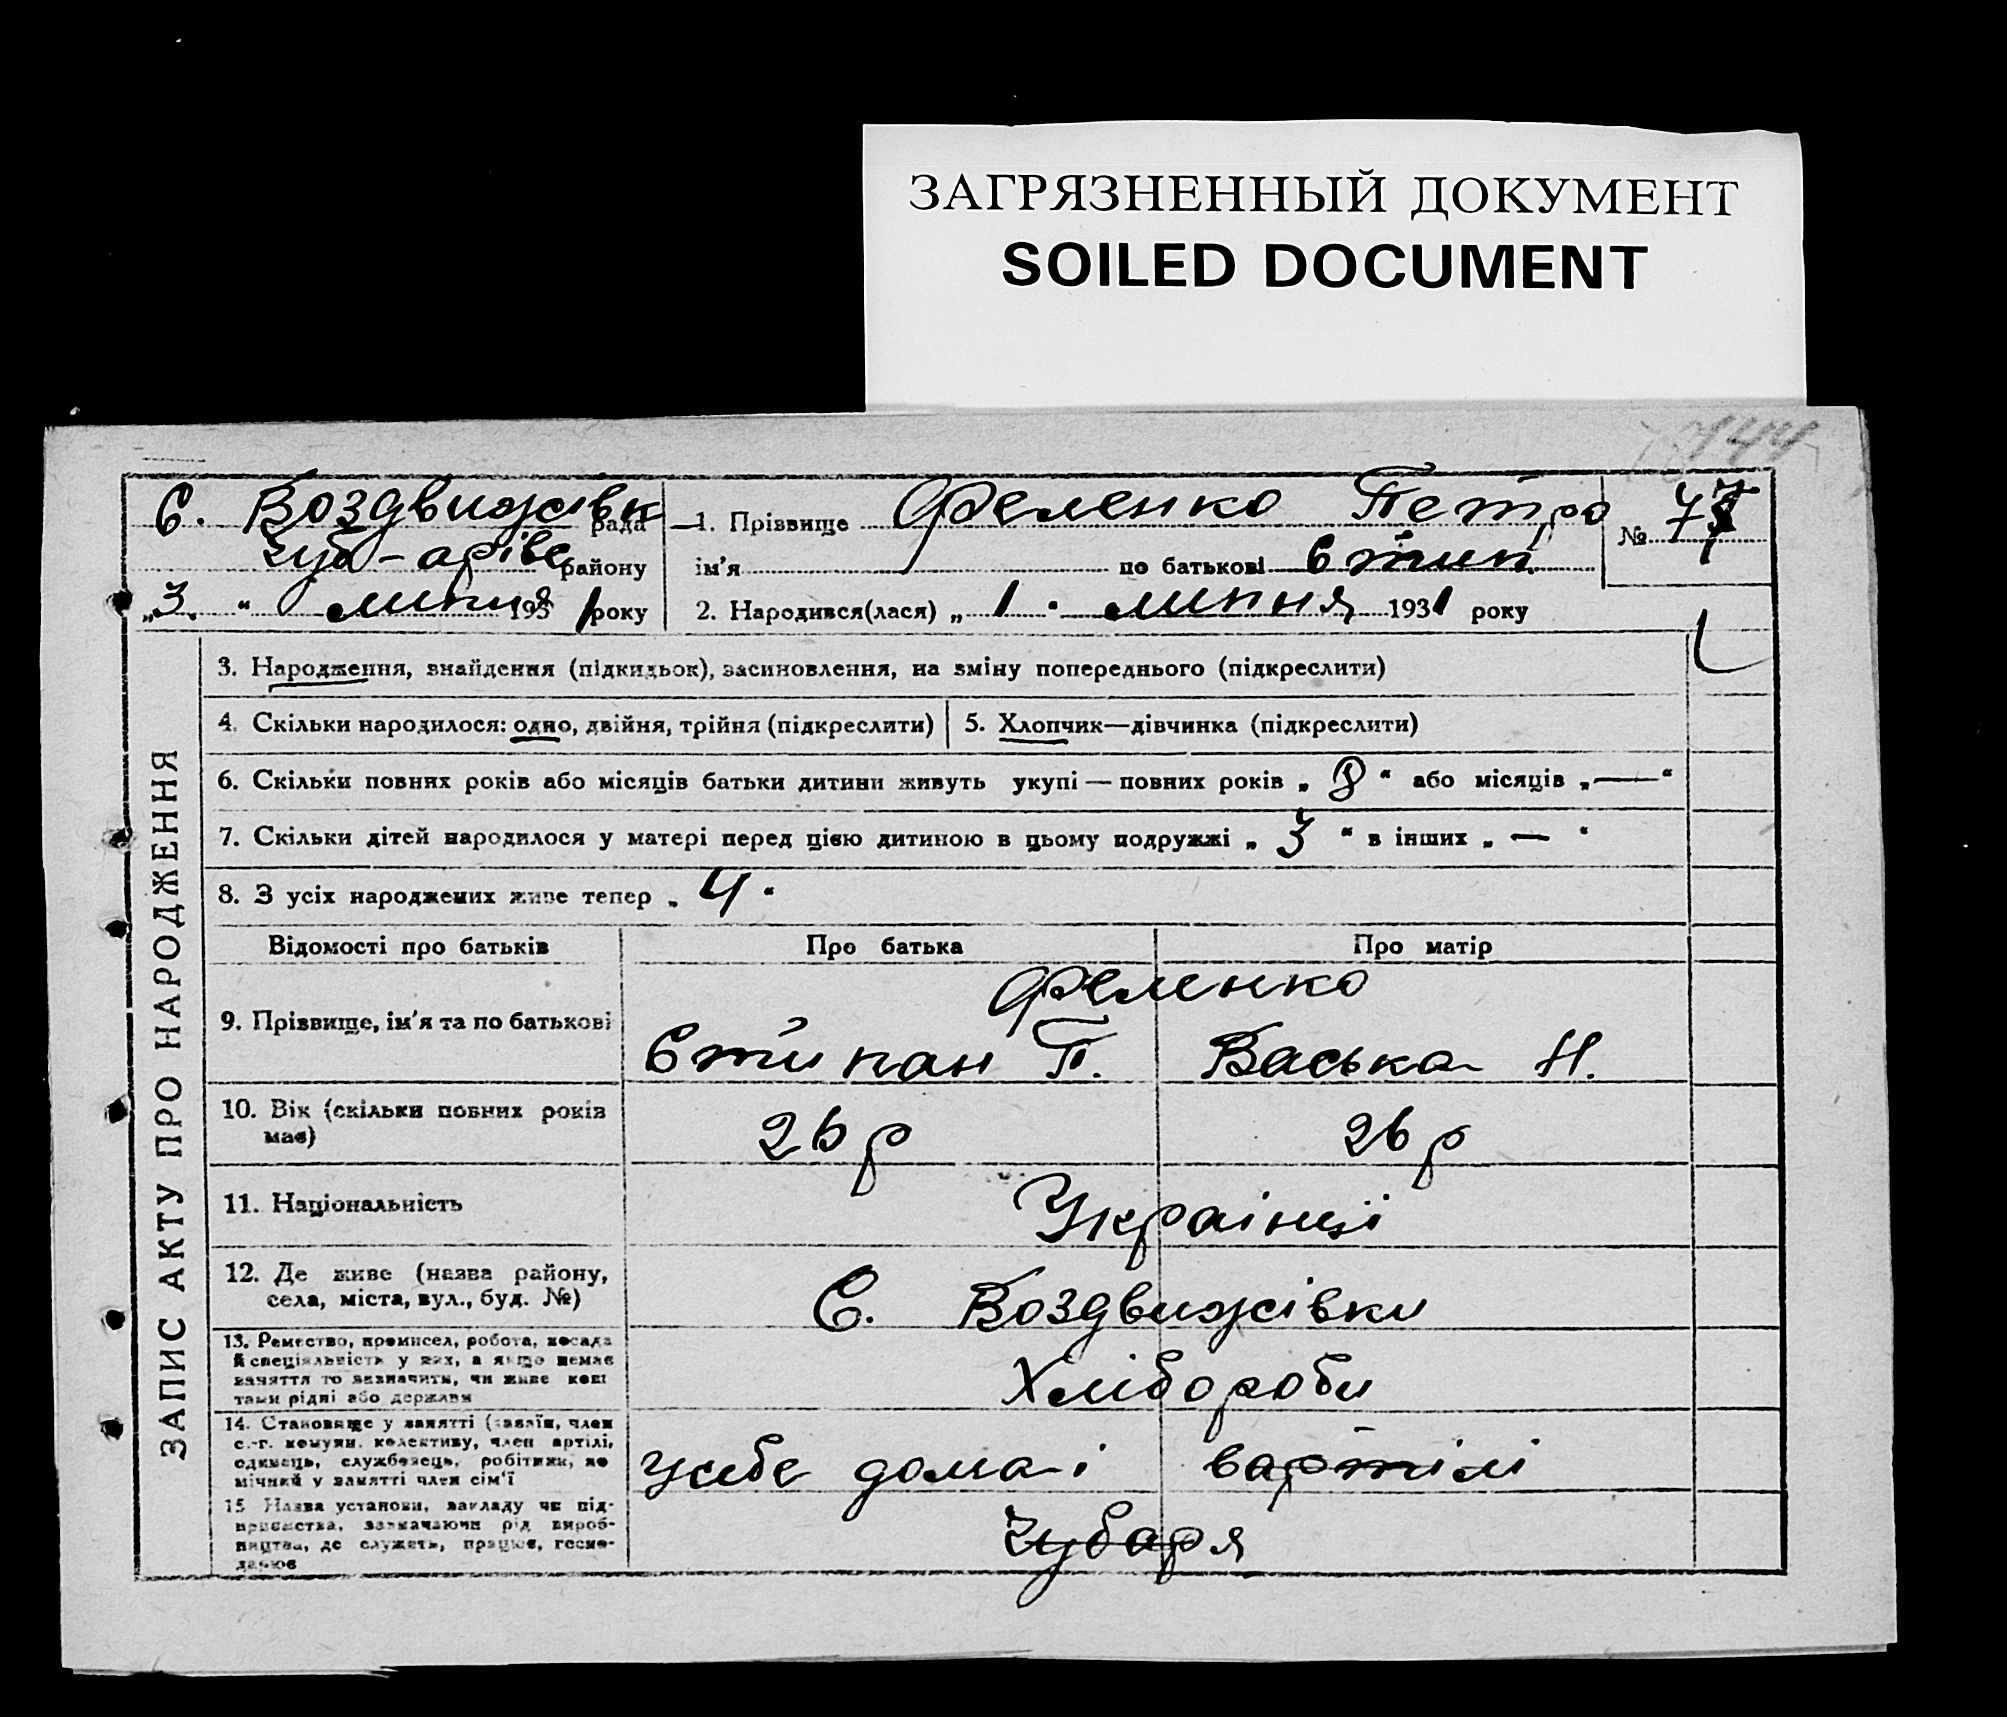 ЗАГРЯЗНЕННЫЙ ДОКУМЕНТ
SOILED DOCUMENT
144
С. Воздвижівк рада
Чуб-арівс району
„3. “ липня 1931 року
1. Прізвище Феленко Петро
ім'я по батькові Стип.
2. Народився(лася) „1. липня 1931 року
№ 77
ЗАПИС АКТУ ПРО НАРОДЖЕННЯ
3. Народження, знайдення (підкидьок), засиновлення, на зміну попереднього (підкреслити)
4. Скільки народилося: одно, двійня, трійня (підкреслити)
5. Хлопчик—дівчинка (підкреслити)
6. Скільки повних років або місяців батьки дитини живуть укупі — повних років „ 8 “ або місяців „—“
7. Скільки дітей народилося у матері перед цією дитиною в цьому подружжі „ 3 “ в інших „ — “
8. З усіх народжених живе тепер „ 4 “
Відомості про батьків Про батька Про матір
9. Прізвище, ім'я та по батькові
Феленко
Стипан П. Васька Н.
10. Вік (скільки повних років має)
26 р 26 р
11. Національність
Украінці
12. Де живе (назва району,
села, міста, вул., буд. №)
С. Воздвижівки
13. Ремество, промисел, робота, посада
й спеціяльність у них, а якщо немає
заняття то зазначити, чи живе кош
тами рідні або держави
Хлібороби
14. Становище у занятті (хазяїн, член
с.-г. комуни, колективу, член артілі,
одинець, службовець, робітник, по
мічний у занятті член сім'ї
усебе дома і вартілі
15 Назва установи, закладу чи під-
приємства, зазначаючи рід вироб-
ництва, де служить, працює, госпо-
дарює
Чубаря